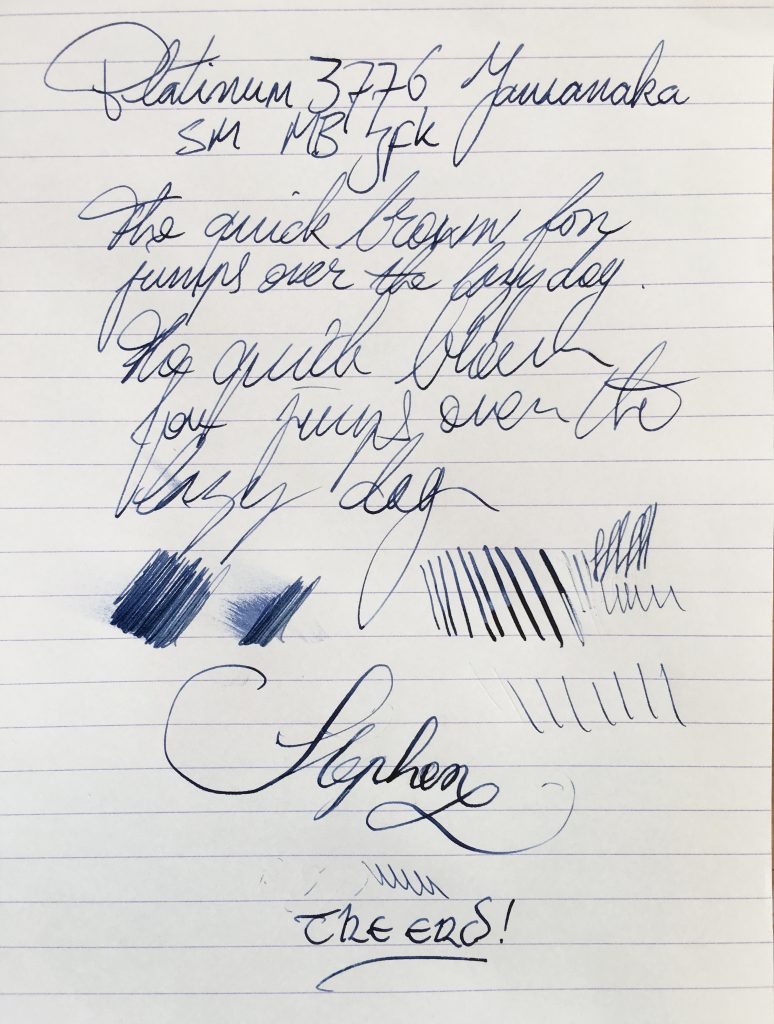 Platinum 3776 Yamanaka
SM MB
The quick brown fox
jumps over the lazy dog.
The quick brown
fox jumps over the
lazy dog
Stephen
CHEERS!